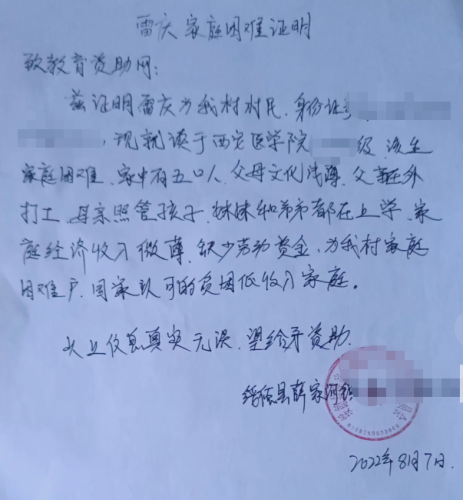 雷庆家庭困难证明
致教育资助网:
兹证明雷庆为我村村民,身份证号
,现就读于西安医学院 级,该生
家庭困难,家中有五口人,父母文化浅薄,父亲在外
打工,母亲照管孩子,妹妹和弟弟都在上学,家
庭经济收入微薄,缺少劳动资金,为我村家庭
困难户,国家认可的贫困低收入家庭。
以上信息真实无误,望给予资助.
绥德县薛家河
2022年8月7日.